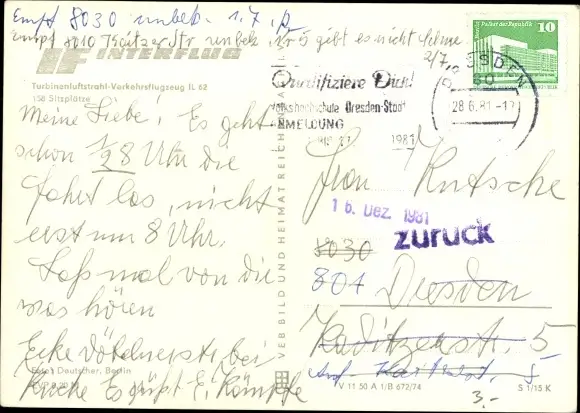 Empf 8030 unbek. 1.7.
Empf 8010 Kaitzer Str unbek. Nr 5 gibt es nicht
2/7.
IF INTERFLUG
Turbinenluftstrahl-Verkehrsflugzeug IL 62
158 Sitzplätze
Meine Liebe! Es geht
schon 1/2 8 Uhr die
Fahrt los, nicht
erst um 8 Uhr.
Laß mal von dir
was hören
Ecke bei
Kirche Es grüßt E.
Foto: Deutscher, Berlin
VEB BILD UND HEIMAT REICHENBACH
Qualifiziere Dich!
Volkshochschule Dresden-Stadt
ANMELDUNG
1981
DRESDEN
28.6.81-17
Palast der Republik
10
DDR
Frau Kutsche
16. Dez. 1981
zurück
8030
801 Dresden
Kaditzerstr. 5
5
V 11 50 A 1/B 672/74
S 1/15 K
3.-